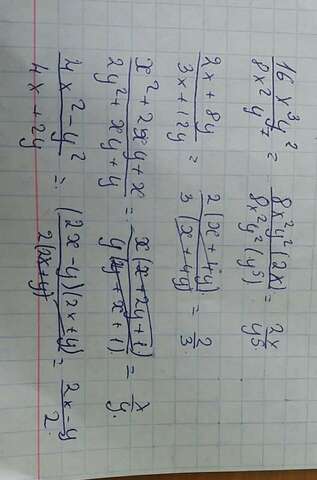 16x³y² / 8x²y⁷ = 8x²y²(2x) / 8x²y²(y⁵) = 2x / y⁵.
2x + 8y / 3x + 12y = 2(x + 4y) / 3(x + 4y) = 2 / 3.
x² + 2xy + x / 2y² + xy + y = x(x + 2y + 1) / y(2y + x + 1) = x / y.
4x² - y² / 4x + 2y = (2x - y)(2x + y) / 2(2x + y) = 2x - y / 2.